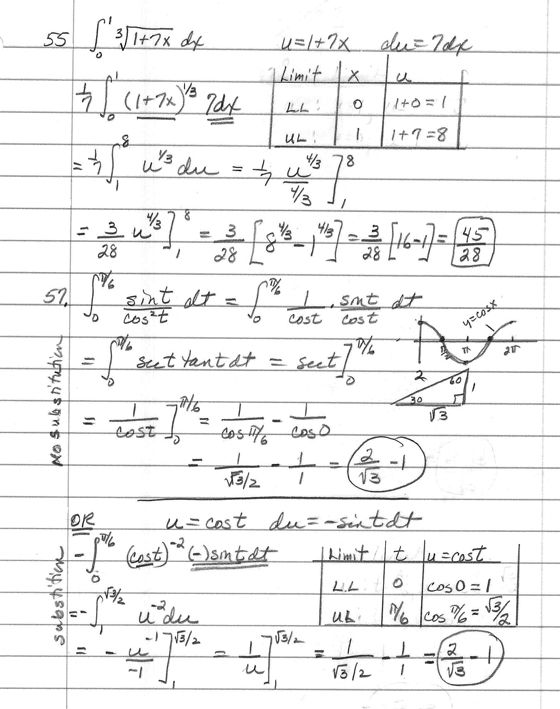 55 ∫₀¹ ³√(1+7x) dx    u=1+7x   du=7dx
Limit | x | u
LL: | 0 | 1+0=1
UL: | 1 | 1+7=8
1/7 ∫₀¹ (1+7x)^(1/3) 7dx
= 1/7 ∫₁⁸ u^(1/3) du = 1/7 u^(4/3)/(4/3) ]₁⁸
= 3/28 u^(4/3) ]₁⁸ = 3/28 [8^(4/3) − 1^(4/3)] = 3/28 [16−1] = 45/28
57. ∫₀^(π/6) sint/cos²t dt = ∫₀^(π/6) 1/cost · sint/cost dt
y=cosx
π 2π
= ∫₀^(π/6) sect tant dt = sect ]₀^(π/6)
2 60 1
30
√3
No substitution
= 1/cost ]₀^(π/6) = 1/cos π/6 − 1/cos0
= 1/(√3/2) − 1/1 = 2/√3 − 1
OR   u=cost   du=−sintdt
substitution
−∫₀^(π/6) (cost)^(−2) (−)sintdt
Limit | t | u=cost
LL | 0 | cos0=1
UL | π/6 | cos π/6 = √3/2
=−∫₁^(√3/2) u^(−2) du
= − u^(−1)/−1 ]₁^(√3/2) = 1/u ]₁^(√3/2) = 1/(√3/2) − 1/1 = 2/√3 − 1